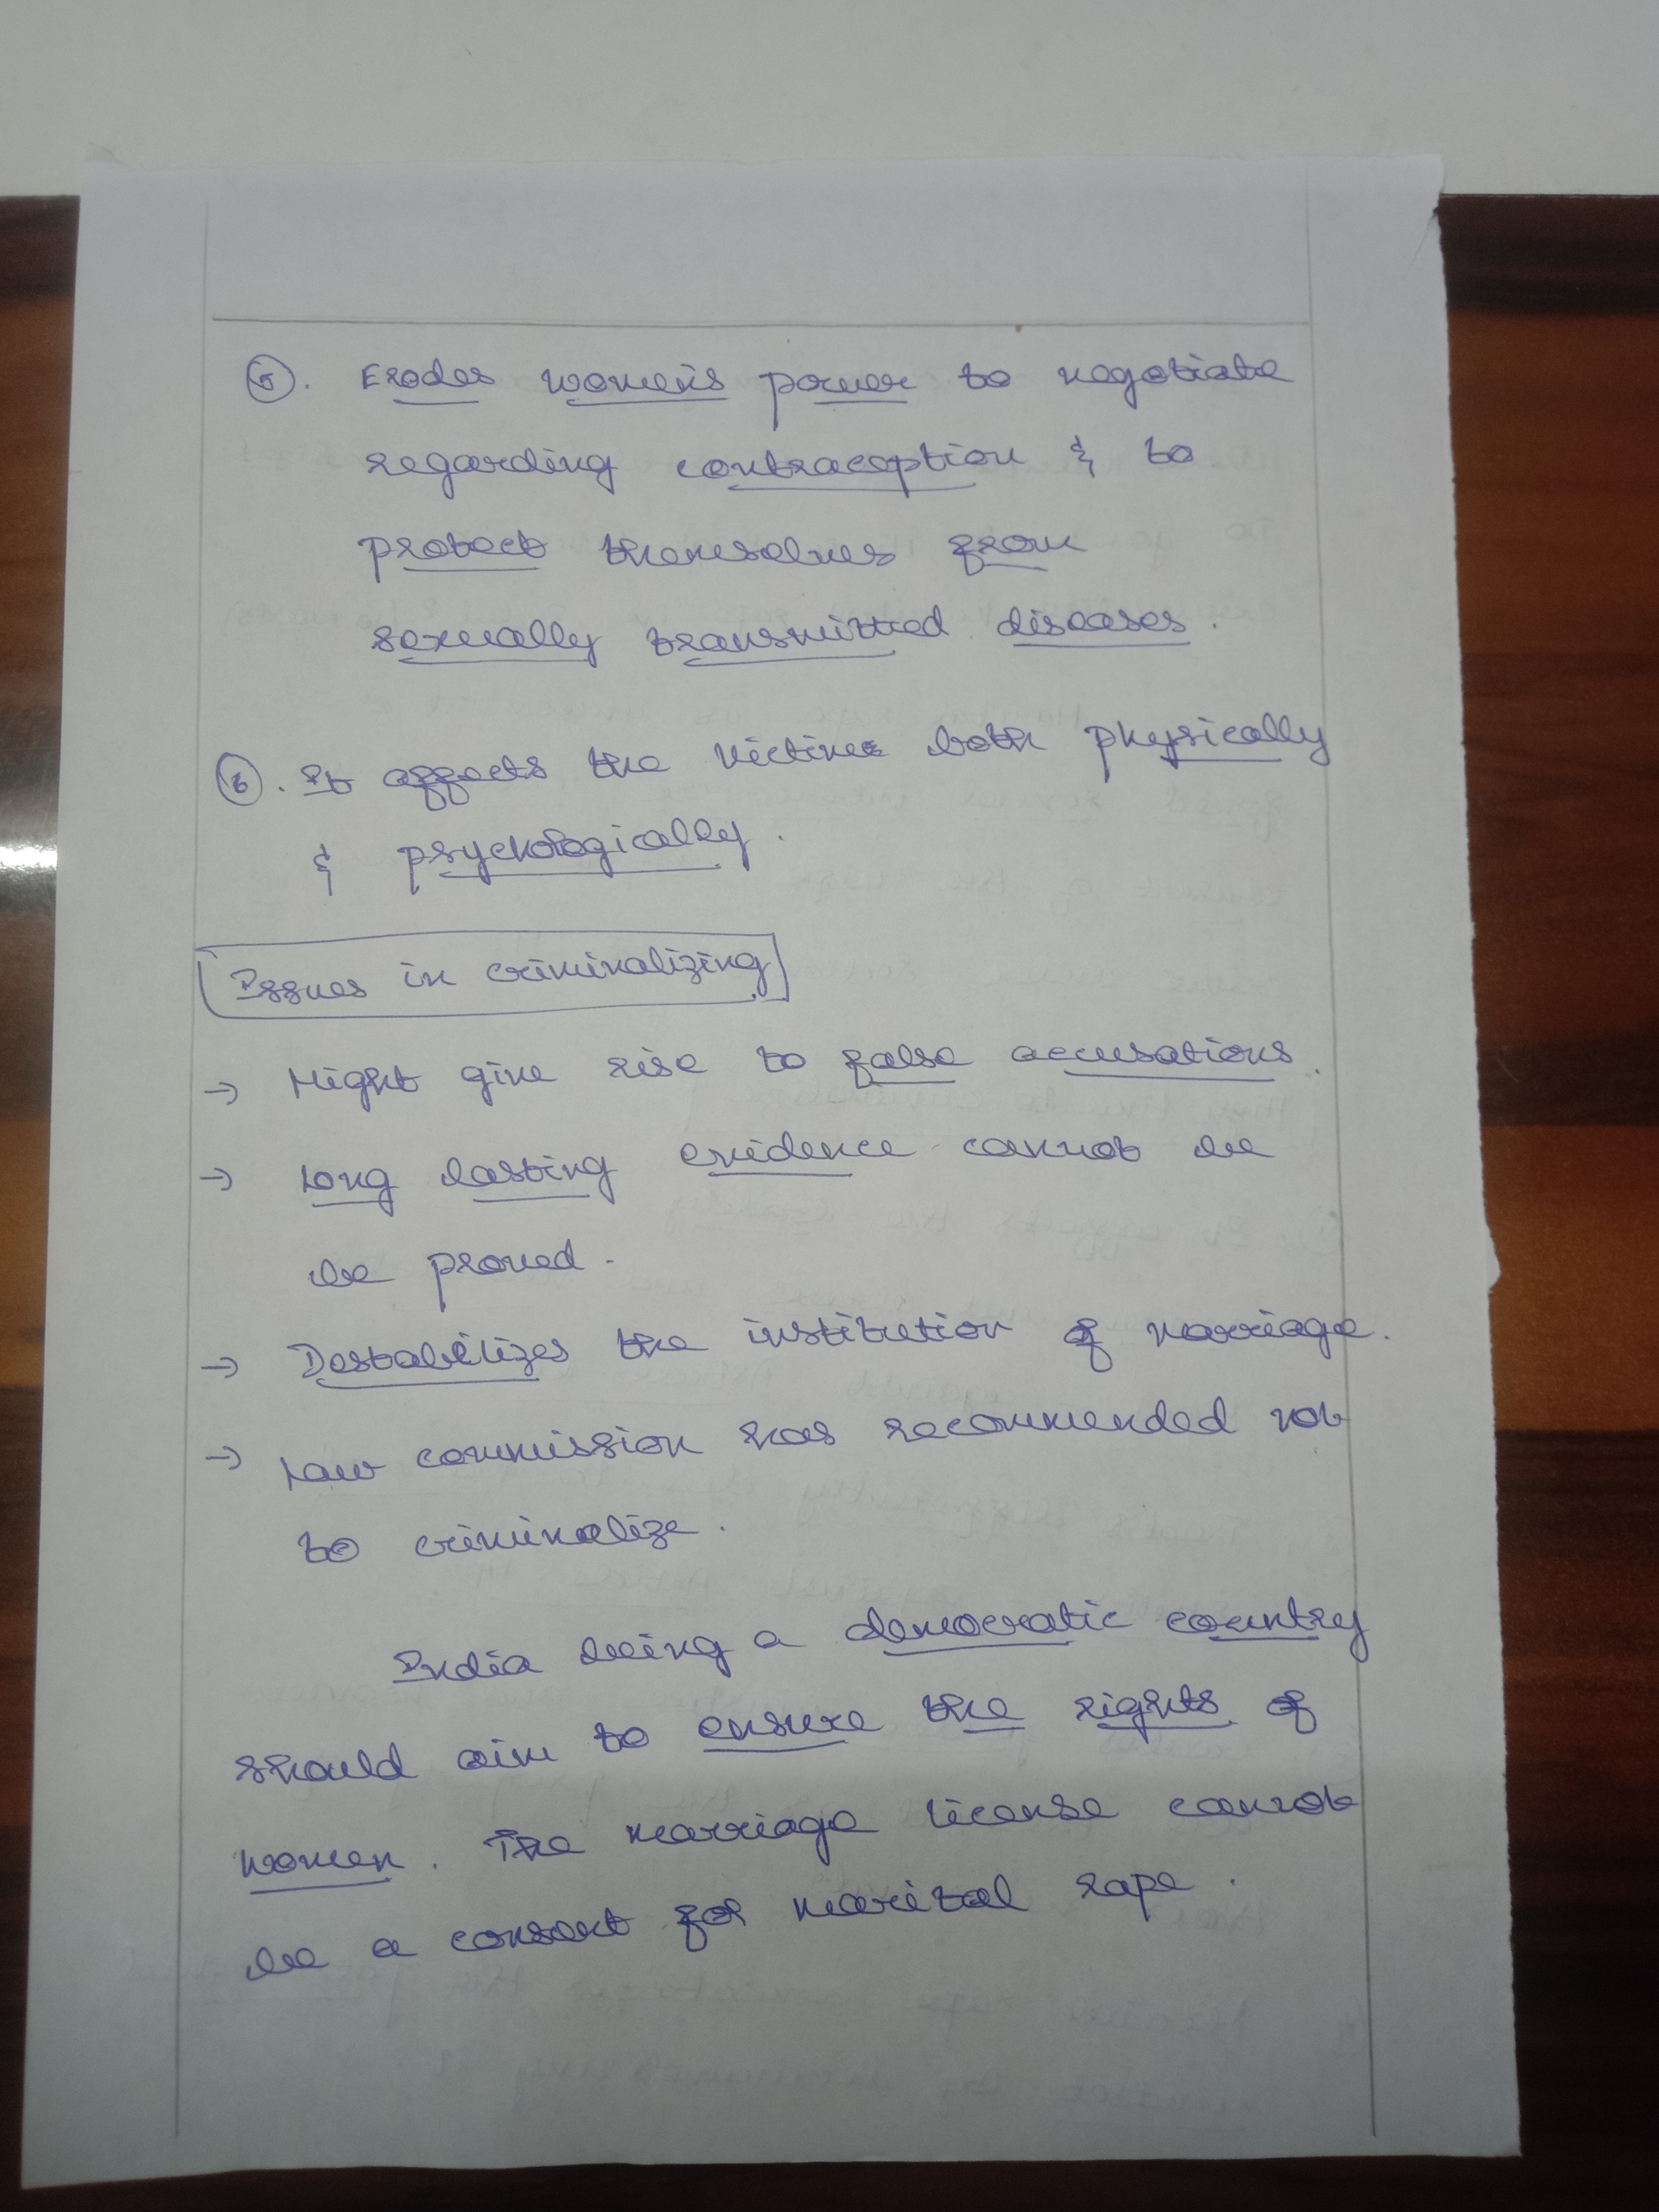 5. Erodes women's power to negotiate
regarding contraception & to
protect themselves from
sexually transmitted diseases.
6. It affects the victims both physically
& psychologically.
Issues in criminalizing
→ Might give rise to false accusations.
→ Long lasting evidence cannot be
be proved.
→ Destabilizes the institution of marriage.
→ Law commission has recommended not
to criminalize.
India being a democratic country
should aim to ensure the rights of
women. The marriage license cannot
be a consent for marital rape.